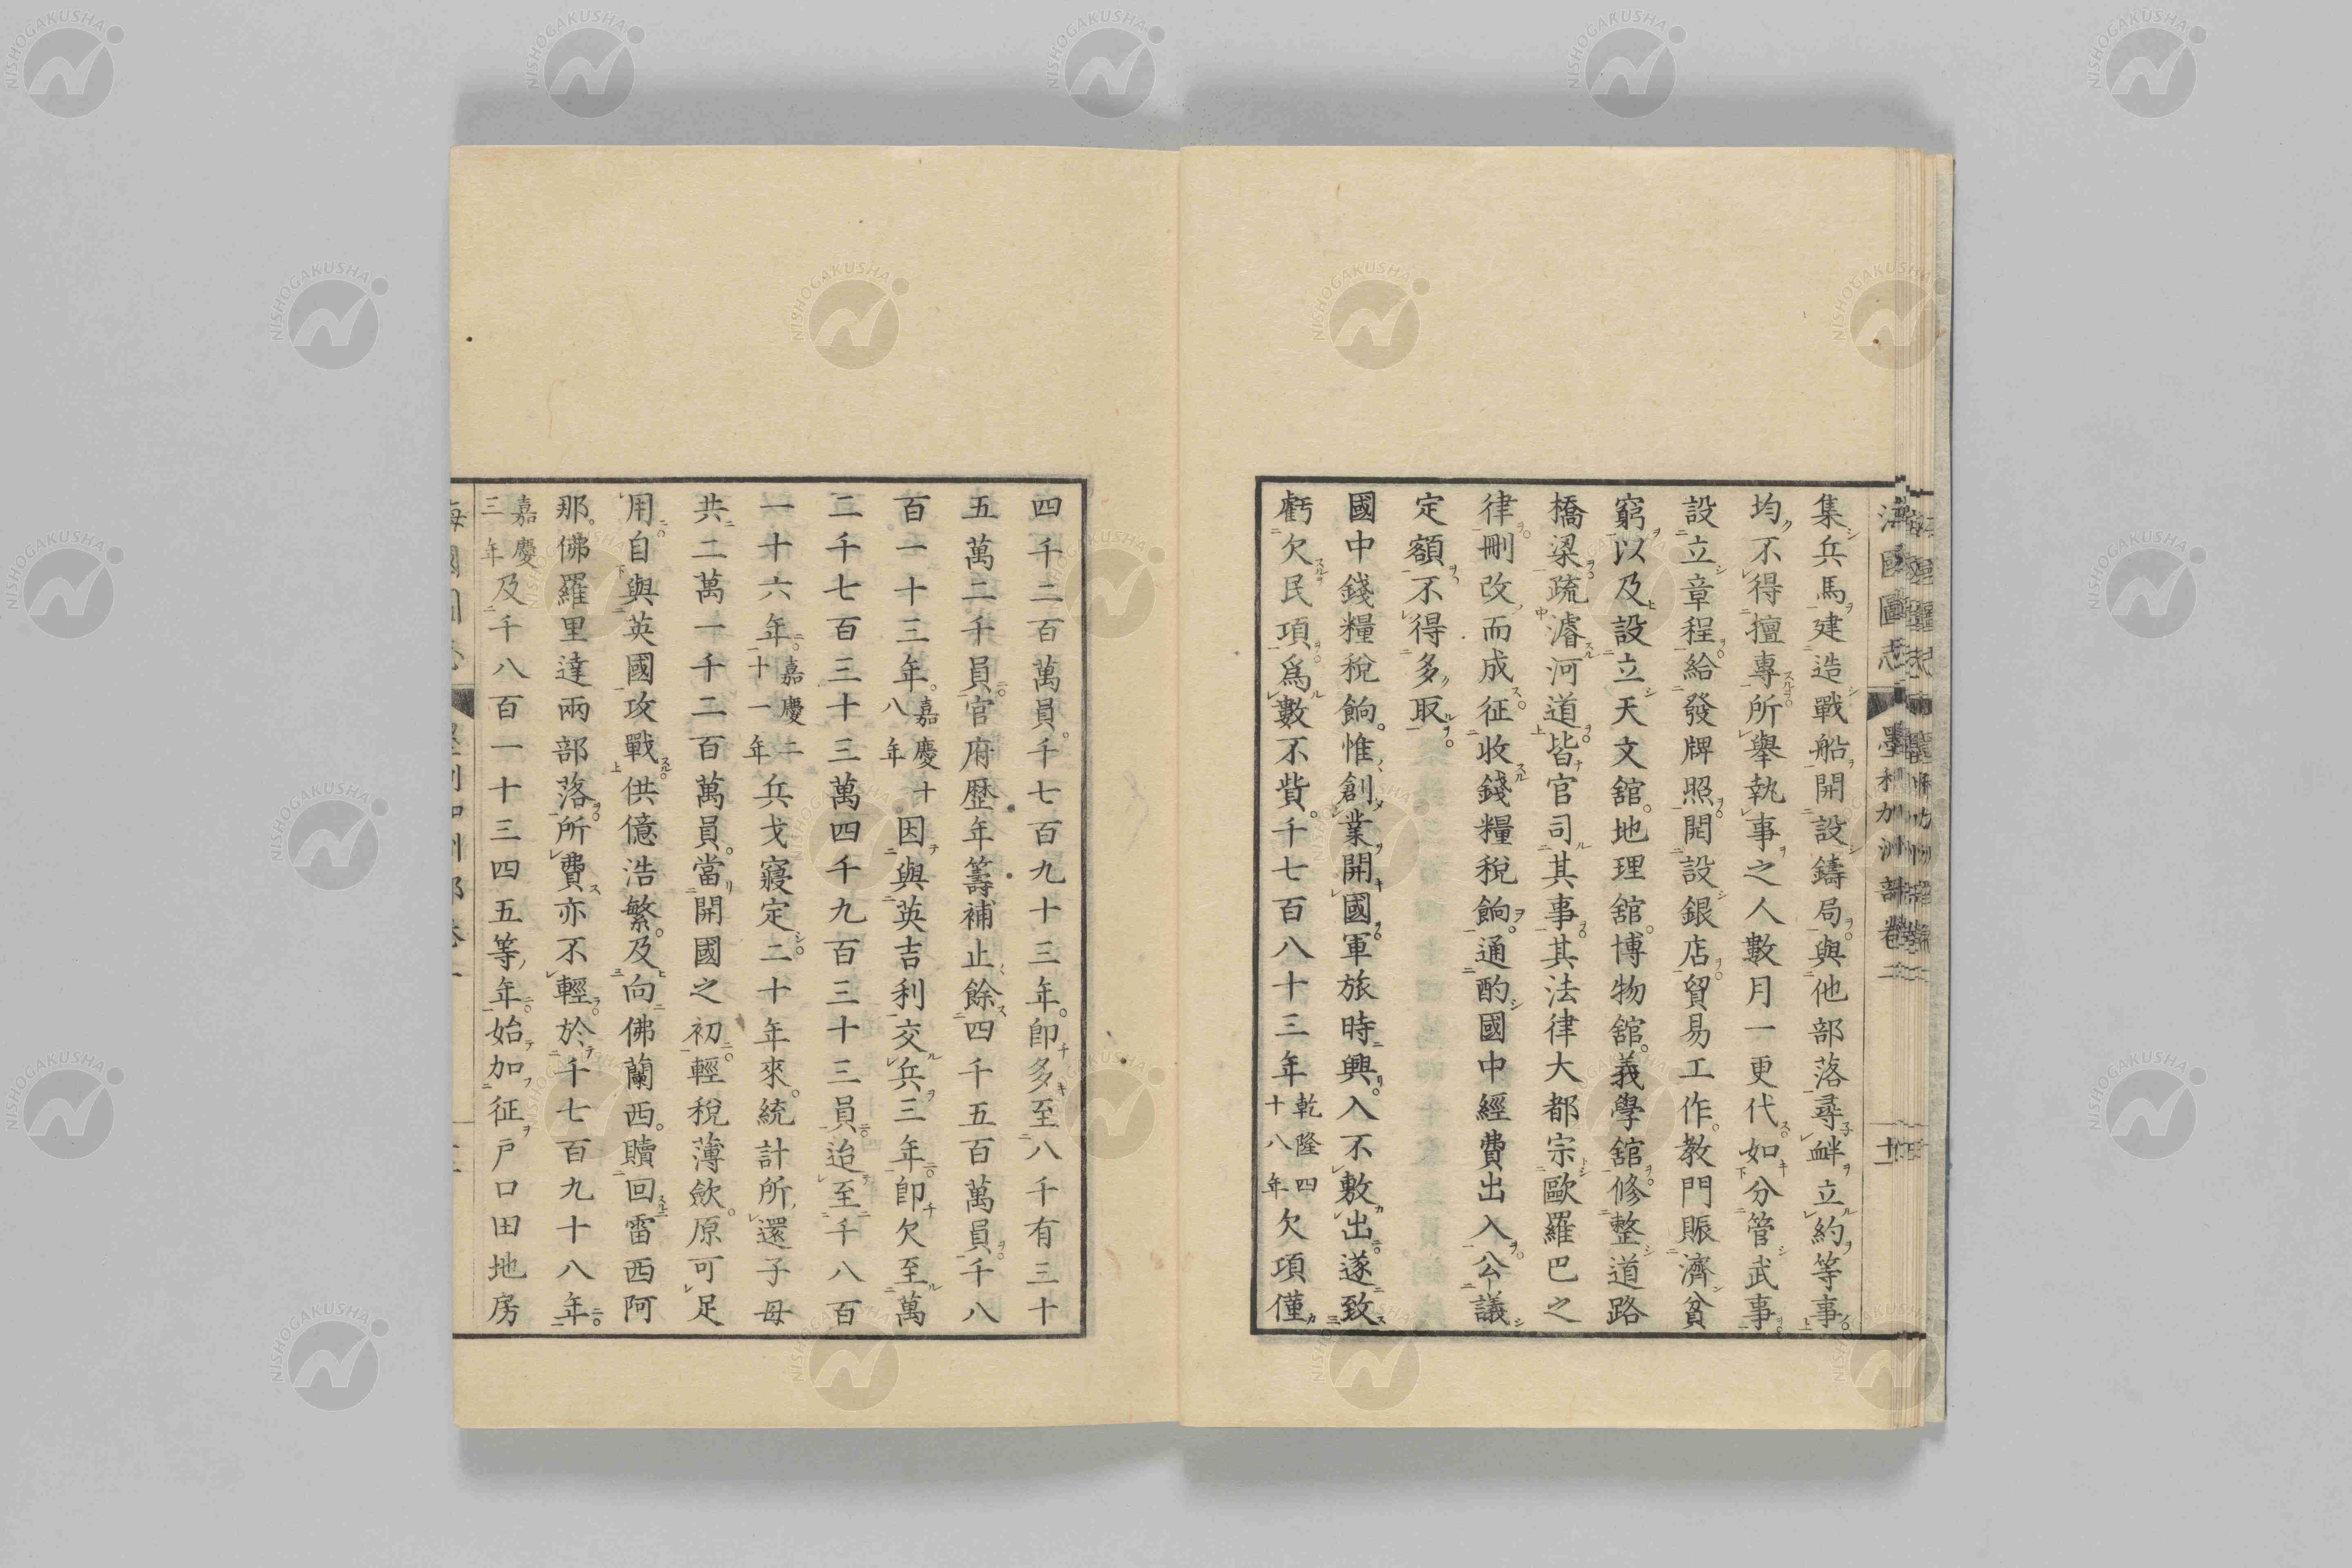 海國圖志 墨利加洲部卷二 十一
集兵馬建造戰船開設鑄局與他部落尋衅立約等事
均不得擅專所舉執事之人數月一更代如分管武事
設立章程給發牌照開設銀店貿易工作教門賑濟貧
窮以及設立天文舘地理舘博物舘義學舘修整道路
橋梁疏濬河道皆官司其事其法律大都宗歐羅巴之
律刪改而成征收錢糧稅餉通酌國中經費出入公議
定額不得多取
國中錢糧稅餉惟創業開國軍旅時興入不敷出遂致
虧欠民項爲數不貲千七百八十三年乾隆四十八年欠項僅
四千二百萬員千七百九十三年卽多至八千有三十
五萬二千員官府歷年籌補止餘四千五百萬員千八
百一十三年嘉慶十八年因與英吉利交兵三年卽欠至萬
二千七百三十三萬四千九百三十三員迨至千八百
一十六年嘉慶二十一年兵戈寢定二十年來統計所還子母
共二萬一千二百萬員當開國之初輕稅薄歛原可足
用自與英國攻戰供億浩繁及向佛蘭西贖回雷西阿
那佛羅里達兩部落所費亦不輕於千七百九十八年
嘉慶三年及千八百一十三四五等年始加征戶口田地房
NISHOGAKUSHA